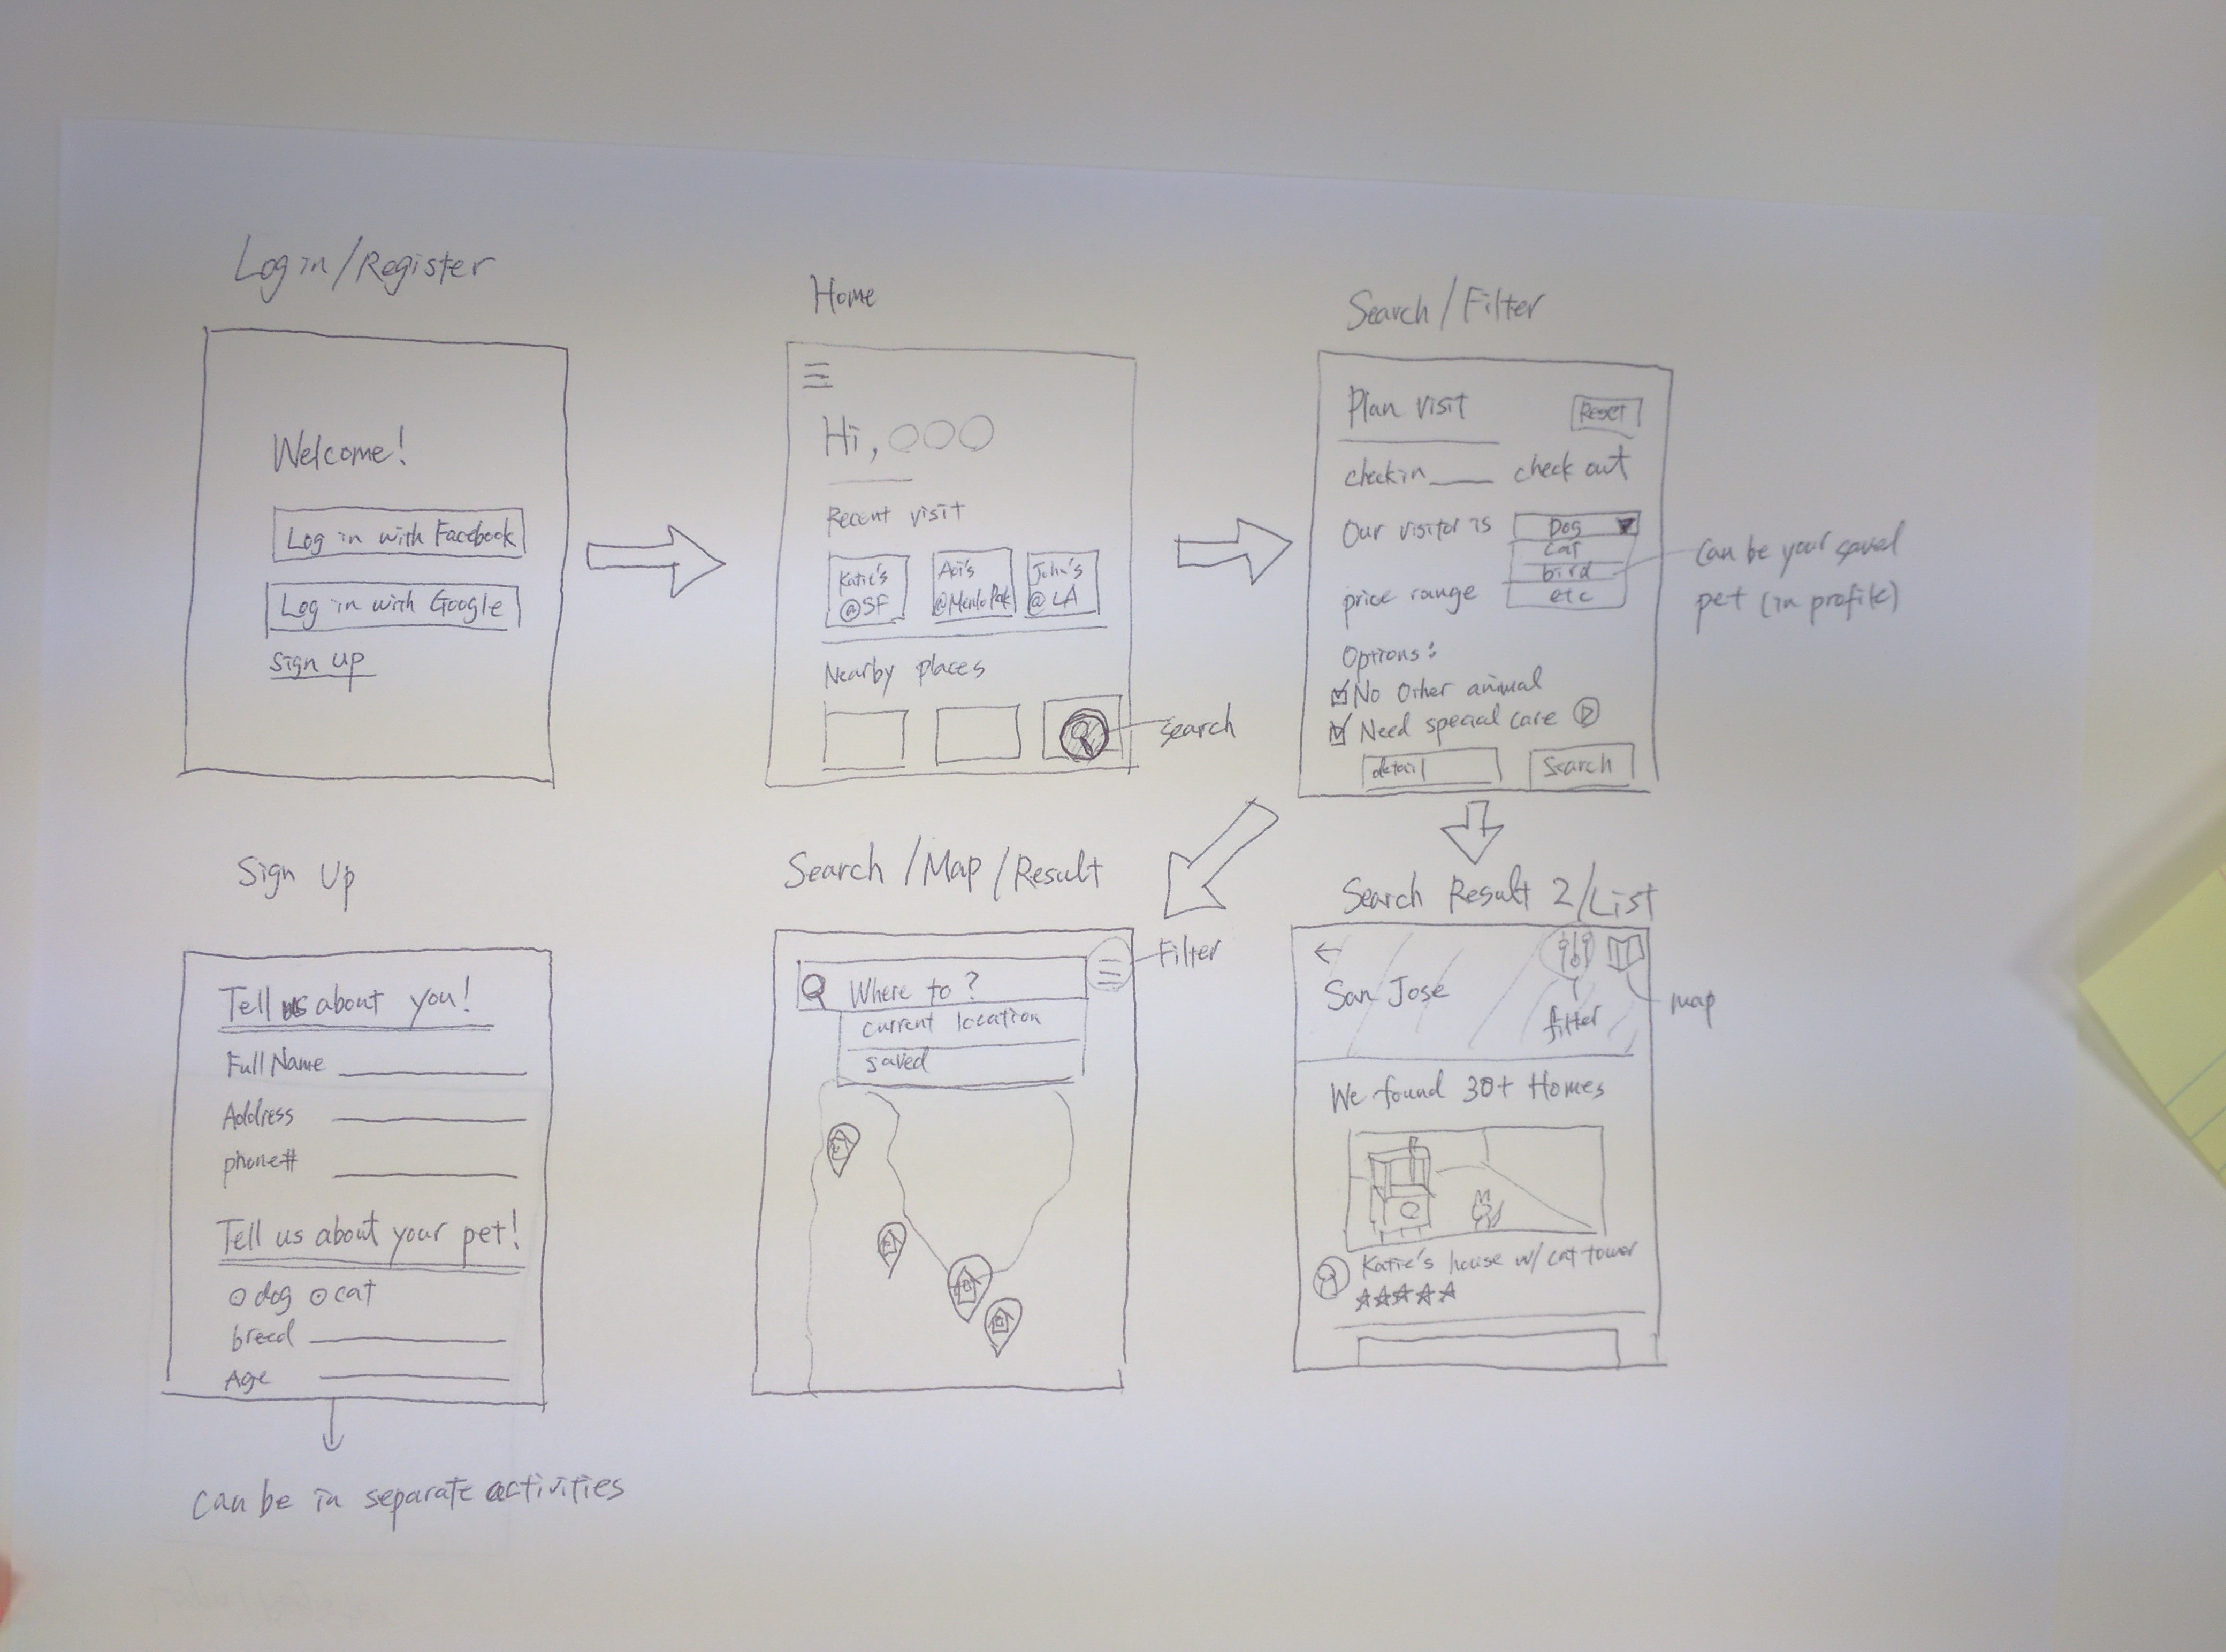 Log in/Register
Welcome!
Log in with Facebook
Log in with Google
Sign up
Home
Hi, OOO
Recent visit
Katie's
@SF
Aoi's
@Menlo Park
John's
@ LA
Nearby places
search
Search/Filter
Plan visit
Reset
checkin____ check out
Our visitor is
Dog
cat
bird
etc
can be your saved
pet (in profile)
price range
Options:
No other animal
Need special care
detail
Search
Sign Up
Tell us about you!
Full Name
Address
phone#
Tell us about your pet!
dog cat
breed
Age
can be in separate activities
Search/Map/Result
Filter
Where to?
current location
saved
Search Result 2/List
San Jose
filter
map
We found 30+ Homes
Katie's house w/ cat tower
☆☆☆☆☆